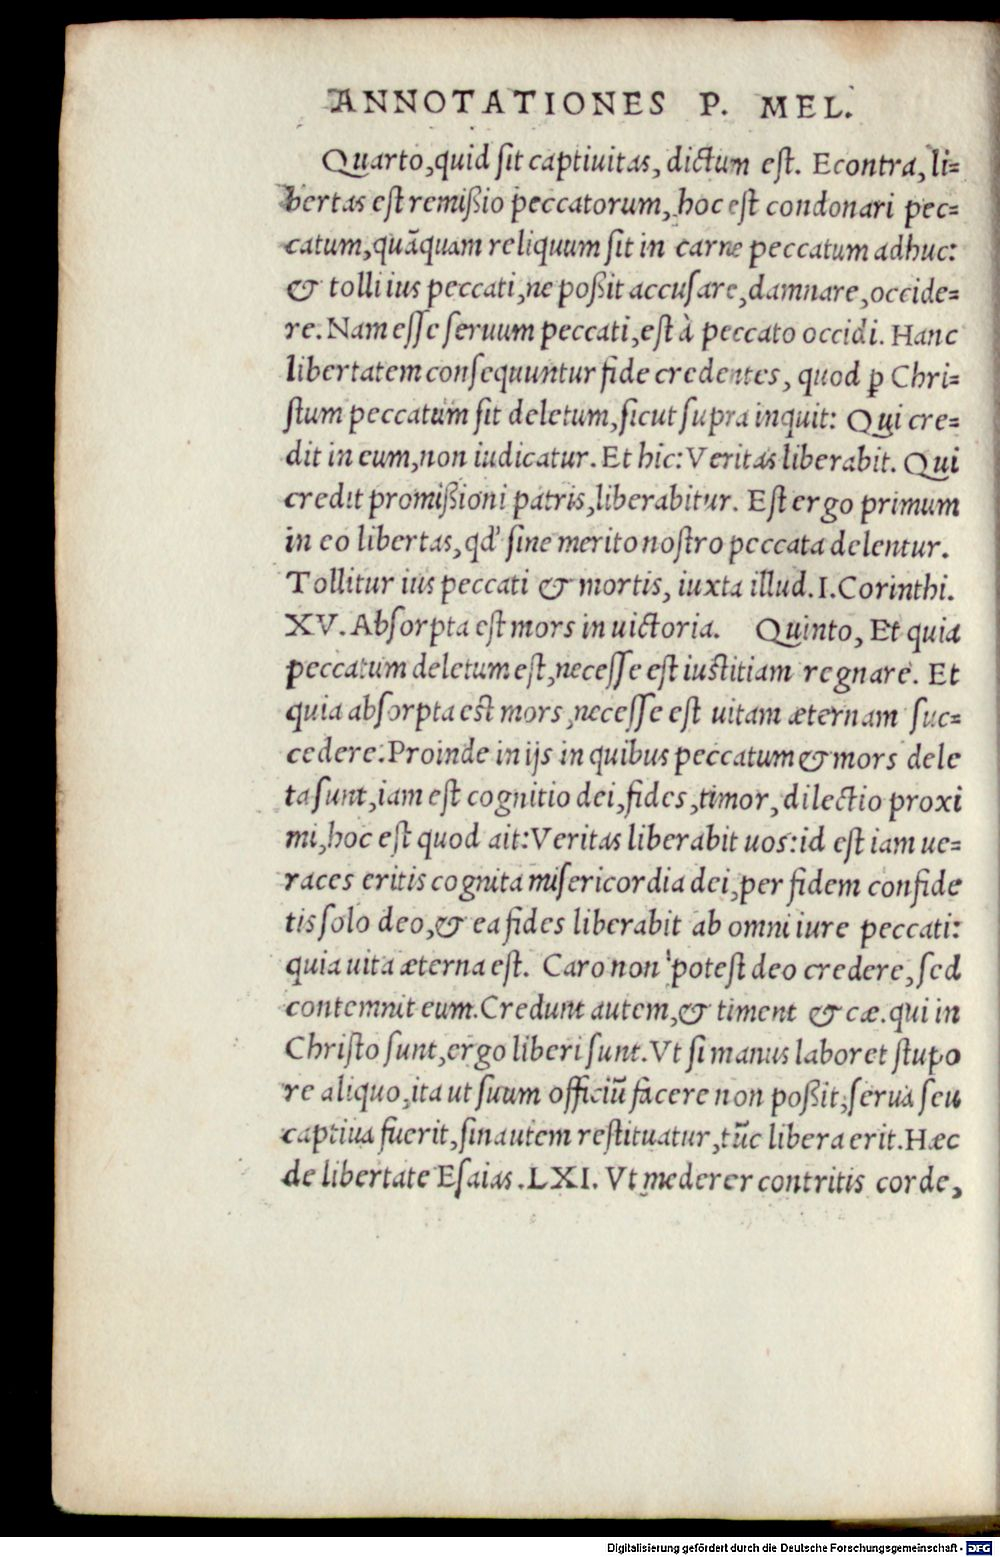 ANNOTATIONES P. MEL.
Quarto,quid ſit captiuitas, dictum eſt. Econtra, li=
bertas eſt remißio peccatorum, hoc eſt condonari pec=
catum,quāquam reliquum ſit in carne peccatum adhuc:
& tolli ius peccati,ne poßit accuſare,damnare,occide=
re. Nam eſſe ſeruum peccati,eſt à peccato occidi. Hanc
libertatem conſequuntur fide credentes, quod ꝑ Chri=
ſtum peccatum ſit deletum,ſicut ſupra inquit: Qui cre=
dit in eum,non iudicatur. Et hic: Veritas liberabit. Qui
credit promißioni patris,liberabitur. Eſt ergo primum
in eo libertas, qd' ſine merito noſtro peccata delentur.
Tollitur ius peccati & mortis, iuxta illud. I. Corinthi.
XV. Abſorpta eſt mors in uictoria. Quinto, Et quia
peccatum deletum eſt,neceſſe eſt iuſtitiam regnare. Et
quia abſorpta eſt mors,neceſſe eſt uitam æternam ſuc=
cedere. Proinde in ijs in quibus peccatum & mors dele
ta ſunt,iam eſt cognitio dei,fides,timor, dilectio proxi
mi,hoc eſt quod ait: Veritas liberabit uos: id eſt iam ue=
races eritis cognita miſericordia dei,per fidem confide
tis ſolo deo,& ea fides liberabit ab omni iure peccati:
quia uita æterna eſt. Caro non poteſt deo credere, ſed
contemnit eum. Credunt autem,& timent & cæ. qui in
Chriſto ſunt,ergo liberi ſunt. Vt ſi manus laboret ſtupo
re aliquo,ita ut ſuum officiū facere non poßit,ſerua ſeu
captiua fuerit,ſin autem reſtituatur,tūc libera erit. Hæc
de libertate Eſaias. LXI. Vt mederer contritis corde,
Digitalisierung gefördert durch die Deutsche Forschungsgemeinschaft - DFG